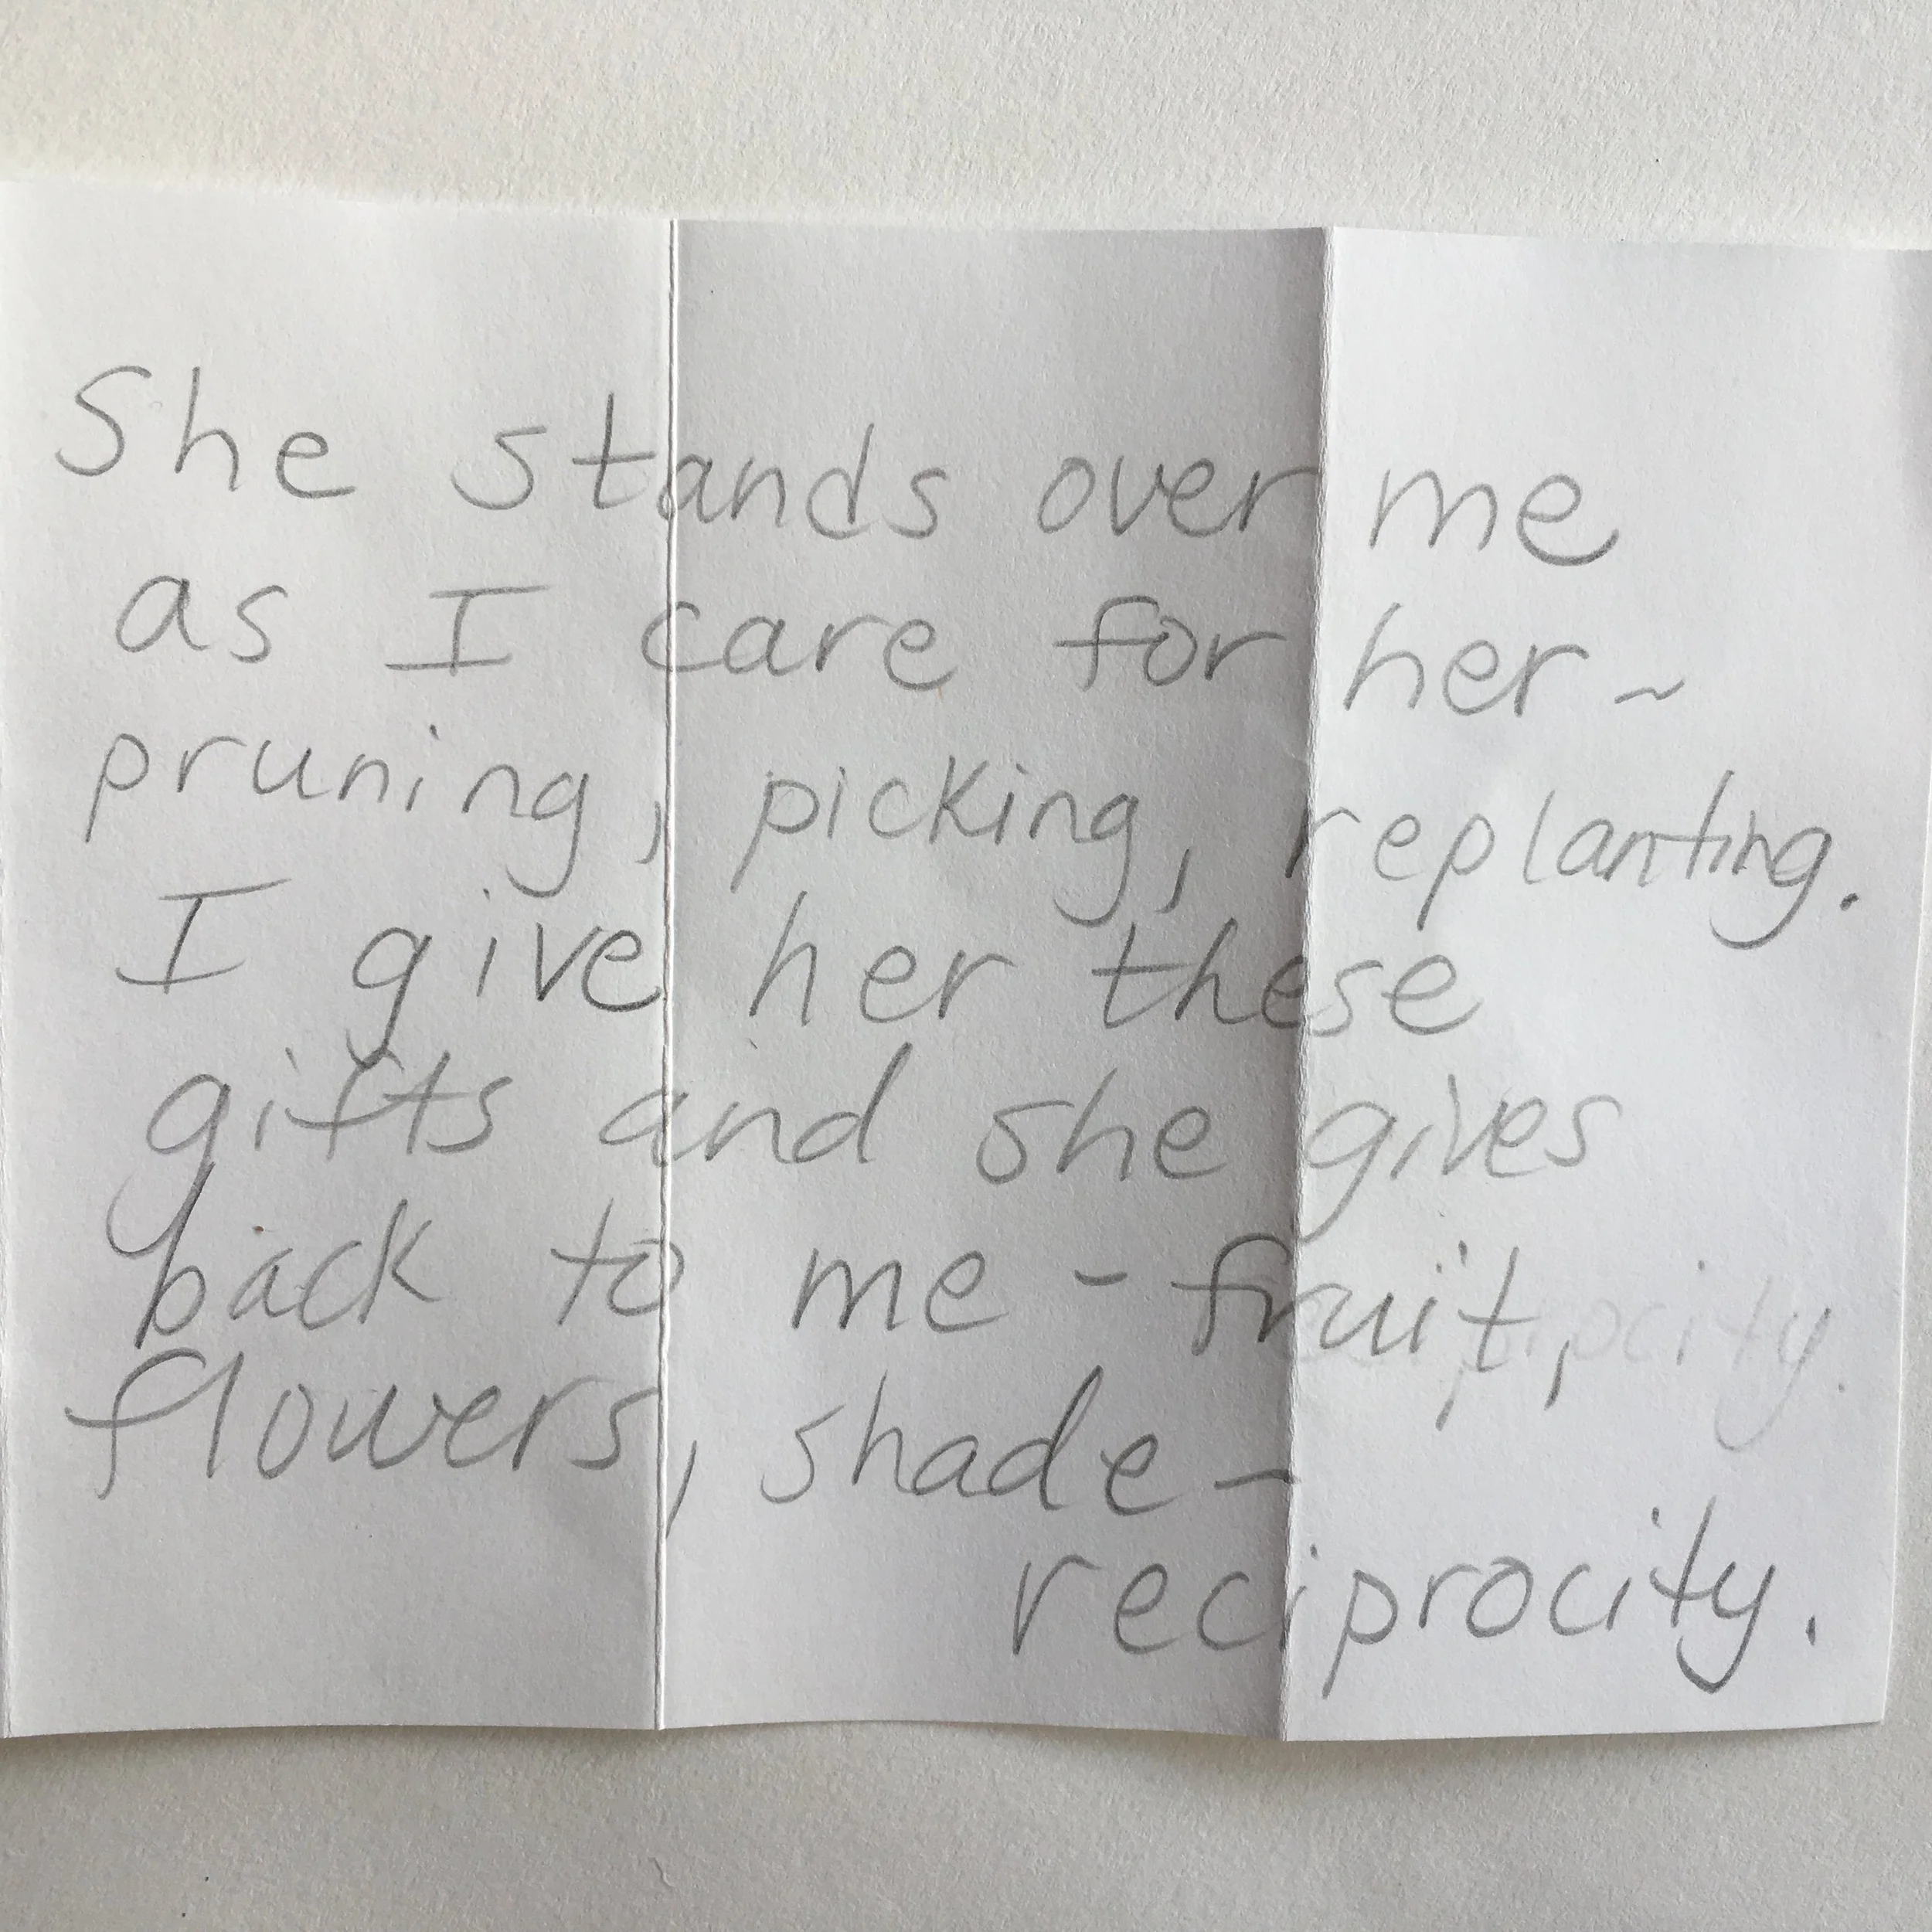 She stands over me
as I care for her ~
pruning, picking, replanting.
I give her these
gifts and she gives
back to me - fruit,
flowers, shade -
reciprocity.